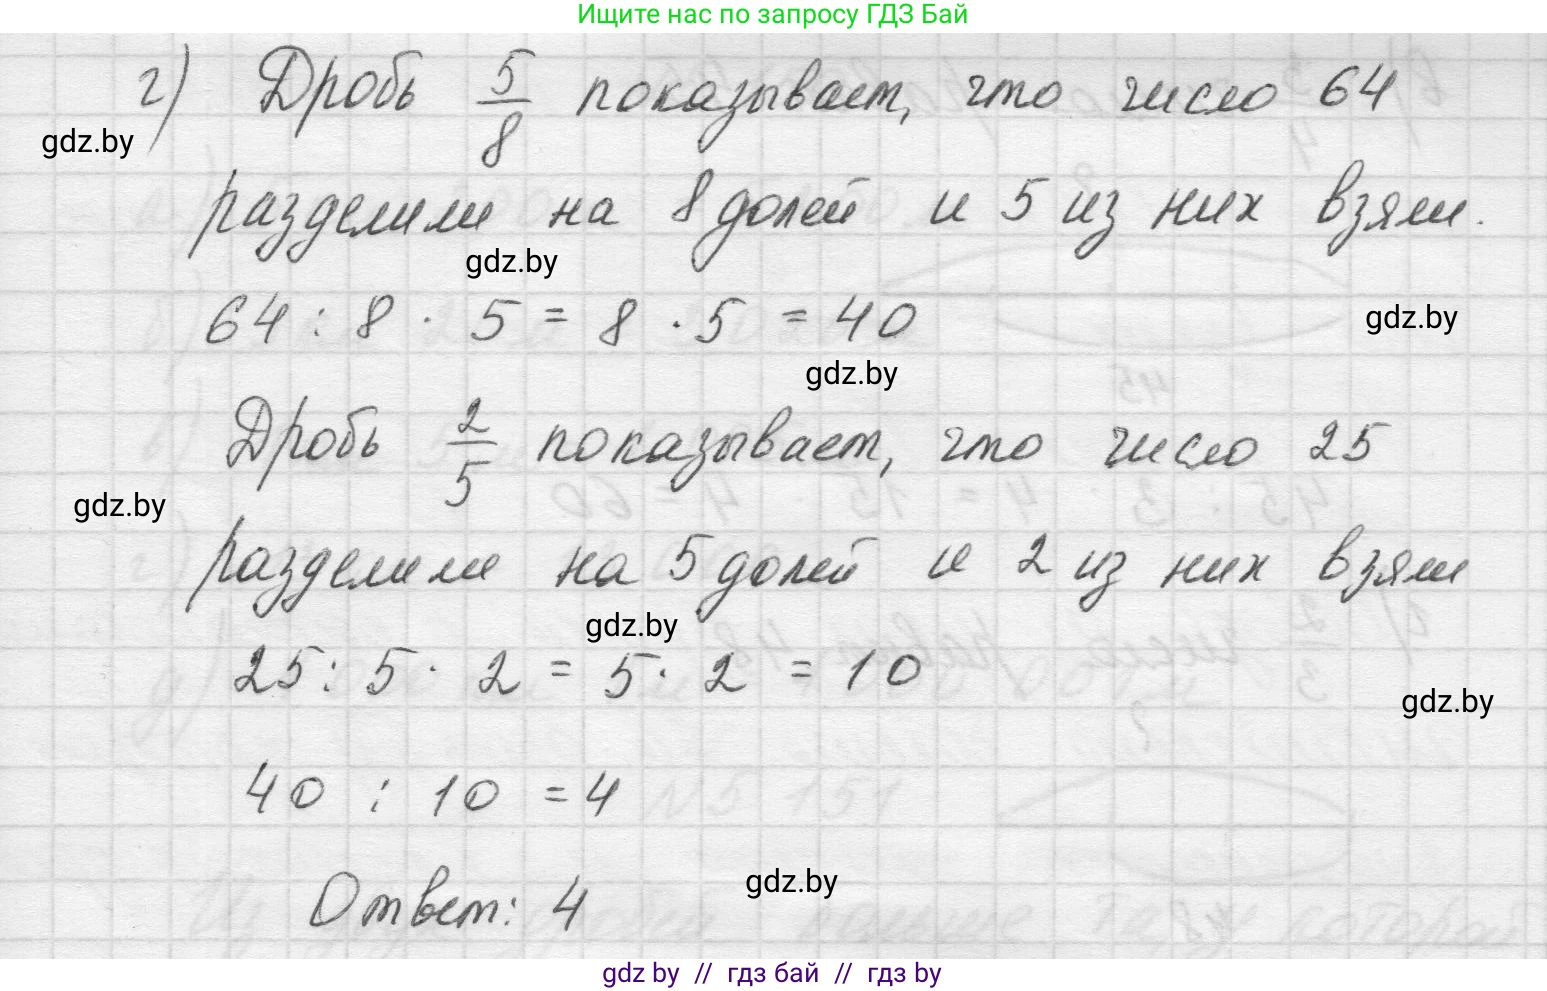 Ищите нас по запросу ГДЗ Бай
г) Дробь 5/8 показывает, что число 64
gdz.by
разделили на 8 долей и 5 из них взяли.
gdz.by
64 : 8 · 5 = 8 · 5 = 40
gdz.by
gdz.by
Дробь 2/5 показывает, что число 25
gdz.by
разделили на 5 долей и 2 из них взяли
gdz.by
25 : 5 · 2 = 5 · 2 = 10
gdz.by
40 : 10 = 4
gdz.by
Ответ: 4
gdz by // гдз бай // гдз by